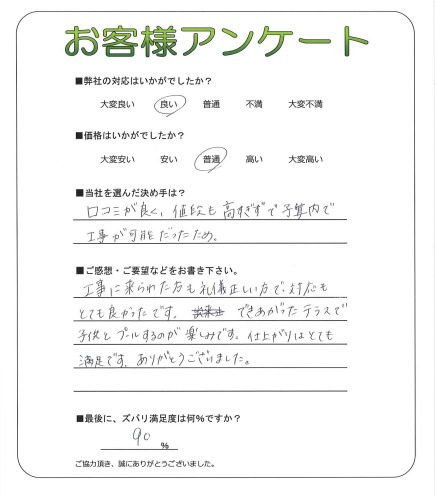 お客様アンケート
■弊社の対応はいかがでしたか？
大変良い 良い 普通 不満 大変不満
■価格はいかがでしたか？
大変安い 安い 普通 高い 大変高い
■当社を選んだ決め手は？
口コミが良く、値段も高すぎずで予算内で
工事が可能だったため。
■ご感想・ご要望などをお書き下さい。
工事に来られた方も礼儀正しい方で、対応も
とても良かったです。できあがったテラスで
子供とプールするのが楽しみです。仕上がりはとても
満足です。ありがとうございました。
■最後に、ズバリ満足度は何％ですか？
90 ％
ご協力頂き、誠にありがとうございました。